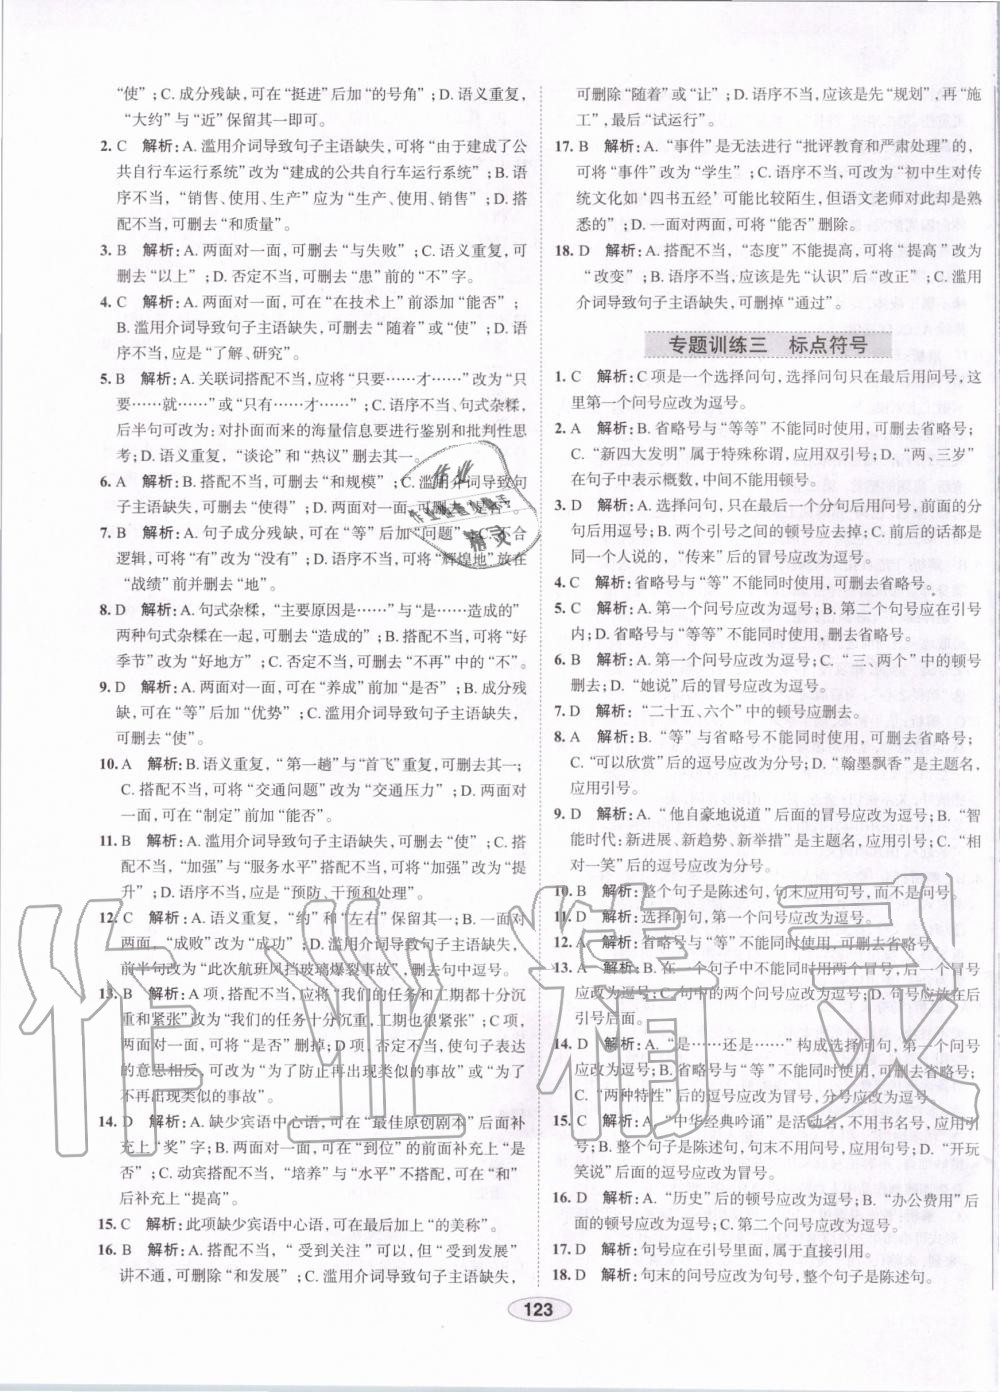 “使”;C. 成分残缺,可在“挺进”后加“的号角”;D. 语义重复,
“大约”与“近”保留其一即可。
2. C 解析:A. 滥用介词导致句子主语缺失,可将“由于建成了公
共自行车运行系统”改为“建成的公共自行车运行系统”;B. 语
序不当,“销售、使用、生产”应为“生产、使用、销售”;D. 搭
配不当,可删去“和质量”。
3. B 解析:A. 两面对一面,可删去“与失败”;C. 语义重复,可
删去“以上”;D. 否定不当,可删去“患”前的“不”字。
4. C 解析:A. 两面对一面,可在“在技术上”前添加“能否”;
B. 滥用介词导致句子主语缺失,可删去“随着”或“使”;D. 语
序不当,应是“了解、研究”。
5. B 解析:A. 关联词搭配不当,应将“只要……才……”改为“只
要……就……”或“只有……才……”;C. 语序不当、句式杂糅,
后半句可改为:对扑面而来的海量信息要进行鉴别和批判性思
考;D. 语义重复,“谈论”和“热议”其一删去。
6. A 解析:B. 搭配不当,可删去“和规模”;C. 滥用介词导致句
子主语缺失,可删去“使得”;D. 两面对一面,可删去“是否”。
7. B 解析:A. 句子成分残缺,可在“等”后加“问题”;C. 不合
逻辑,可将“有”改为“没有”;D. 语序不当,可将“辉煌地”放在
“战绩”前并删去“地”。
8. D 解析:A. 句式杂糅,“主要原因是……”与“是……造成的”
两种句式杂糅在一起,可删去“造成的”;B. 搭配不当,可将“好
季节”改为“好地方”;C. 否定不当,可删去“不再”中的“不”。
9. D 解析:A. 两面对一面,可在“养成”前加“是否”;B. 成分残
缺,可在“等”后加“优势”;C. 滥用介词导致句子主语缺失,
可删去“使”。
10. A 解析:B. 语义重复,“第一趟”与“首飞”重复,可删去其一;
C. 搭配不当,可将“交通问题”改为“交通压力”;D. 两面对
一面,可在“制定”前加“能否”。
11. B 解析:A. 滥用介词导致句子主语缺失,可删去“使”;C. 搭
配不当,“加强”与“服务水平”搭配不当,可将“加强”改为“提
升”;D. 语序不当,应是“预防、干预和处理”。
12. C 解析:A. 语义重复,“约”和“左右”保留其一;B. 一面对
两面,“成败”改为“成功”;D. 滥用介词导致句子主语缺失,
前半句改为“此次航班风挡玻璃爆裂事故”,删去句中逗号。
13. B 解析:A项,搭配不当,应将“我们的任务和工期都十分沉
重和紧张”改为“我们的任务十分沉重,工期也很紧张”;C项,
两面对一面,可将“是否”删掉;D项,否定不当,使句子表达
的意思相反,可改为“为了防止再出现类似的事故”或“为了不
再出现类似的事故”。
14. D 解析:A. 缺少宾语中心语,可在“最佳原创剧本”后面补
充上“奖”字;B. 两面对一面,可在“到位”的前面补充上“是
否”;C. 动宾搭配不当,“培养”与“水平”不搭配,可在“和”
后补充上“提高”。
15. C 解析:此项缺少宾语中心语,可在最后加上“的美称”。
16. B 解析:A. 搭配不当,“受到关注”可以,但“受到发展”
讲不通,可删除“和发展”;C. 滥用介词导致句子主语缺失,
可删除“随着”或“让”;D. 语序不当,应该是先“规划”,再“施
工”,最后“试运行”。
17. B 解析:A. “事件”是无法进行“批评教育和严肃处理”的,
可将“事件”改为“学生”;C. 语序不当,可改为“初中生对传
统文化如‘四书五经’可能比较陌生,但语文老师对此却是熟
悉的”;D. 一面对两面,可将“能否”删除。
18. D 解析:A. 搭配不当,“态度”不能提高,可将“提高”改为
“改变”;B. 语序不当,应该是先“认识”后“改正”;C. 滥用
介词导致句子主语缺失,可删掉“通过”。
专题训练三 标点符号
1. C 解析:C项是一个选择问句,选择问句只在最后用问号,这
里第一个问号应改为逗号。
2. A 解析:B. 省略号与“等等”不能同时使用,可删去省略号;
C. “新四大发明”属于特殊称谓,应用双引号;D. “两、三岁”
在句子中表示概数,中间不能用顿号。
3. D 解析:A. 选择问句,只在最后一个分句后用问号,前面的分
句后用逗号;B. 两个引号之间的顿号应去掉;C. 前后的话都是
同一个人说的,“传来”后的冒号应改为逗号。
4. C 解析:省略号与“等”不能同时使用,可删去省略号。
5. C 解析:A. 第一个问号应改为逗号;B. 第二个句号应在引号
内;D. 省略号与“等等”不能同时使用,删去省略号。
6. B 解析:A. 第一个问号应改为逗号;C. “三、两个”中的顿号
删去;D. “她说”后的冒号应改为逗号。
7. D 解析:“二十五、六个”中的顿号应删去。
8. A 解析:B. “等”与省略号不能同时使用,可删去省略号;
C. “可以欣赏”后的冒号应改为逗号;D. “翰墨飘香”是主题名,
应用引号。
9. D 解析:A. “他自豪地说道”后面的冒号应改为逗号;B. “智
能时代:新进展、新趋势、新举措”是主题名,应用引号;C. “相
对一笑”后的逗号应改为分号。
10. B 解析:整个句子是陈述句,句末应用句号,而不是问号。
11. D 解析:选择问句,第一个问号应改为逗号。
12. A 解析:省略号与“等”不能同时使用,可删去省略号。
13. A 解析:B. 在一个句子中不能同时用两个冒号,后一个冒号
应改为逗号;C. 句中的两个问号应改为逗号;D. 句号应放在后
引号后面。
14. D 解析:A. “是……还是……”构成选择问句,第一个问号
应改为逗号;B. 省略号与“等”不能同时使用,可删去省略号;
C. “两种特性”后的冒号应改为逗号,分号应改为逗号。
15. C 解析:A. “中华经典吟诵”是活动名,不用书名号,应用引
号;B. 整个句子是陈述句,句末不用问号,应用句号;D. “开玩
笑说”后面的逗号应改为冒号。
16. D 解析:A. “历史”后的顿号应改为逗号;B. “办公费用”后
面的顿号应改为逗号;C. 第二个问号应改为逗号。
17. D 解析:句号应在引号里面,属于直接引用。
18. D 解析:句末的问号应改为句号,整个句子是陈述句。
123
作业精灵